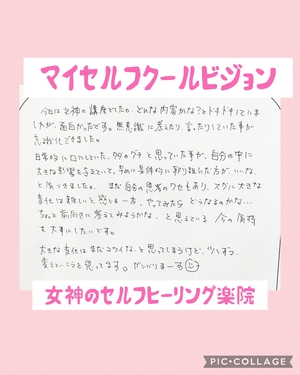 マイセルフクールビジョン
今日は女神の講座でした。どんな内容かな?とドキドキしていま
したが、面白かったです。無意識に考えたり、言ったりしていた事が
意識化できました。
日常的に口にしていた、と思っていた事が、自分の中に
大きな影響を与えていて、早めに具体的に取り組んだ方が、いいな
と感じできました。まだ自分の思考のクセもあり、スグに大きな
変化は難しいと感じる一方、やってみたらどうなるのかな…
ちょっと前向きに考えてみようかな、と思えている今の気持
を大事にしたいです。
大きな変化はまだコワイな、と思ってしまうけど、少しずつ、
変えていこうと思ってます。ガンバりまーす
女神のセルフヒーリング楽院
PIC•COLLAGE